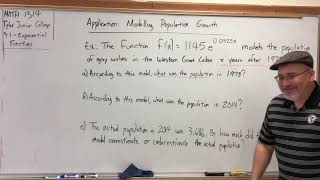 MATH 1314
Tyler Junior College
4.1 - Exponential
Functions
Application: Modelling Population Growth
Ex: The function f(x) = 1145e^0.0325x models the population
of gray wolves in the Western Great Lakes x years after 197
a) According to this model, what was the population in 1978?
b) According to this model, what was the population in 2014?
c) The actual population in 2014 was 3,686. By how much did
model overestimate or underestimate the actual population?